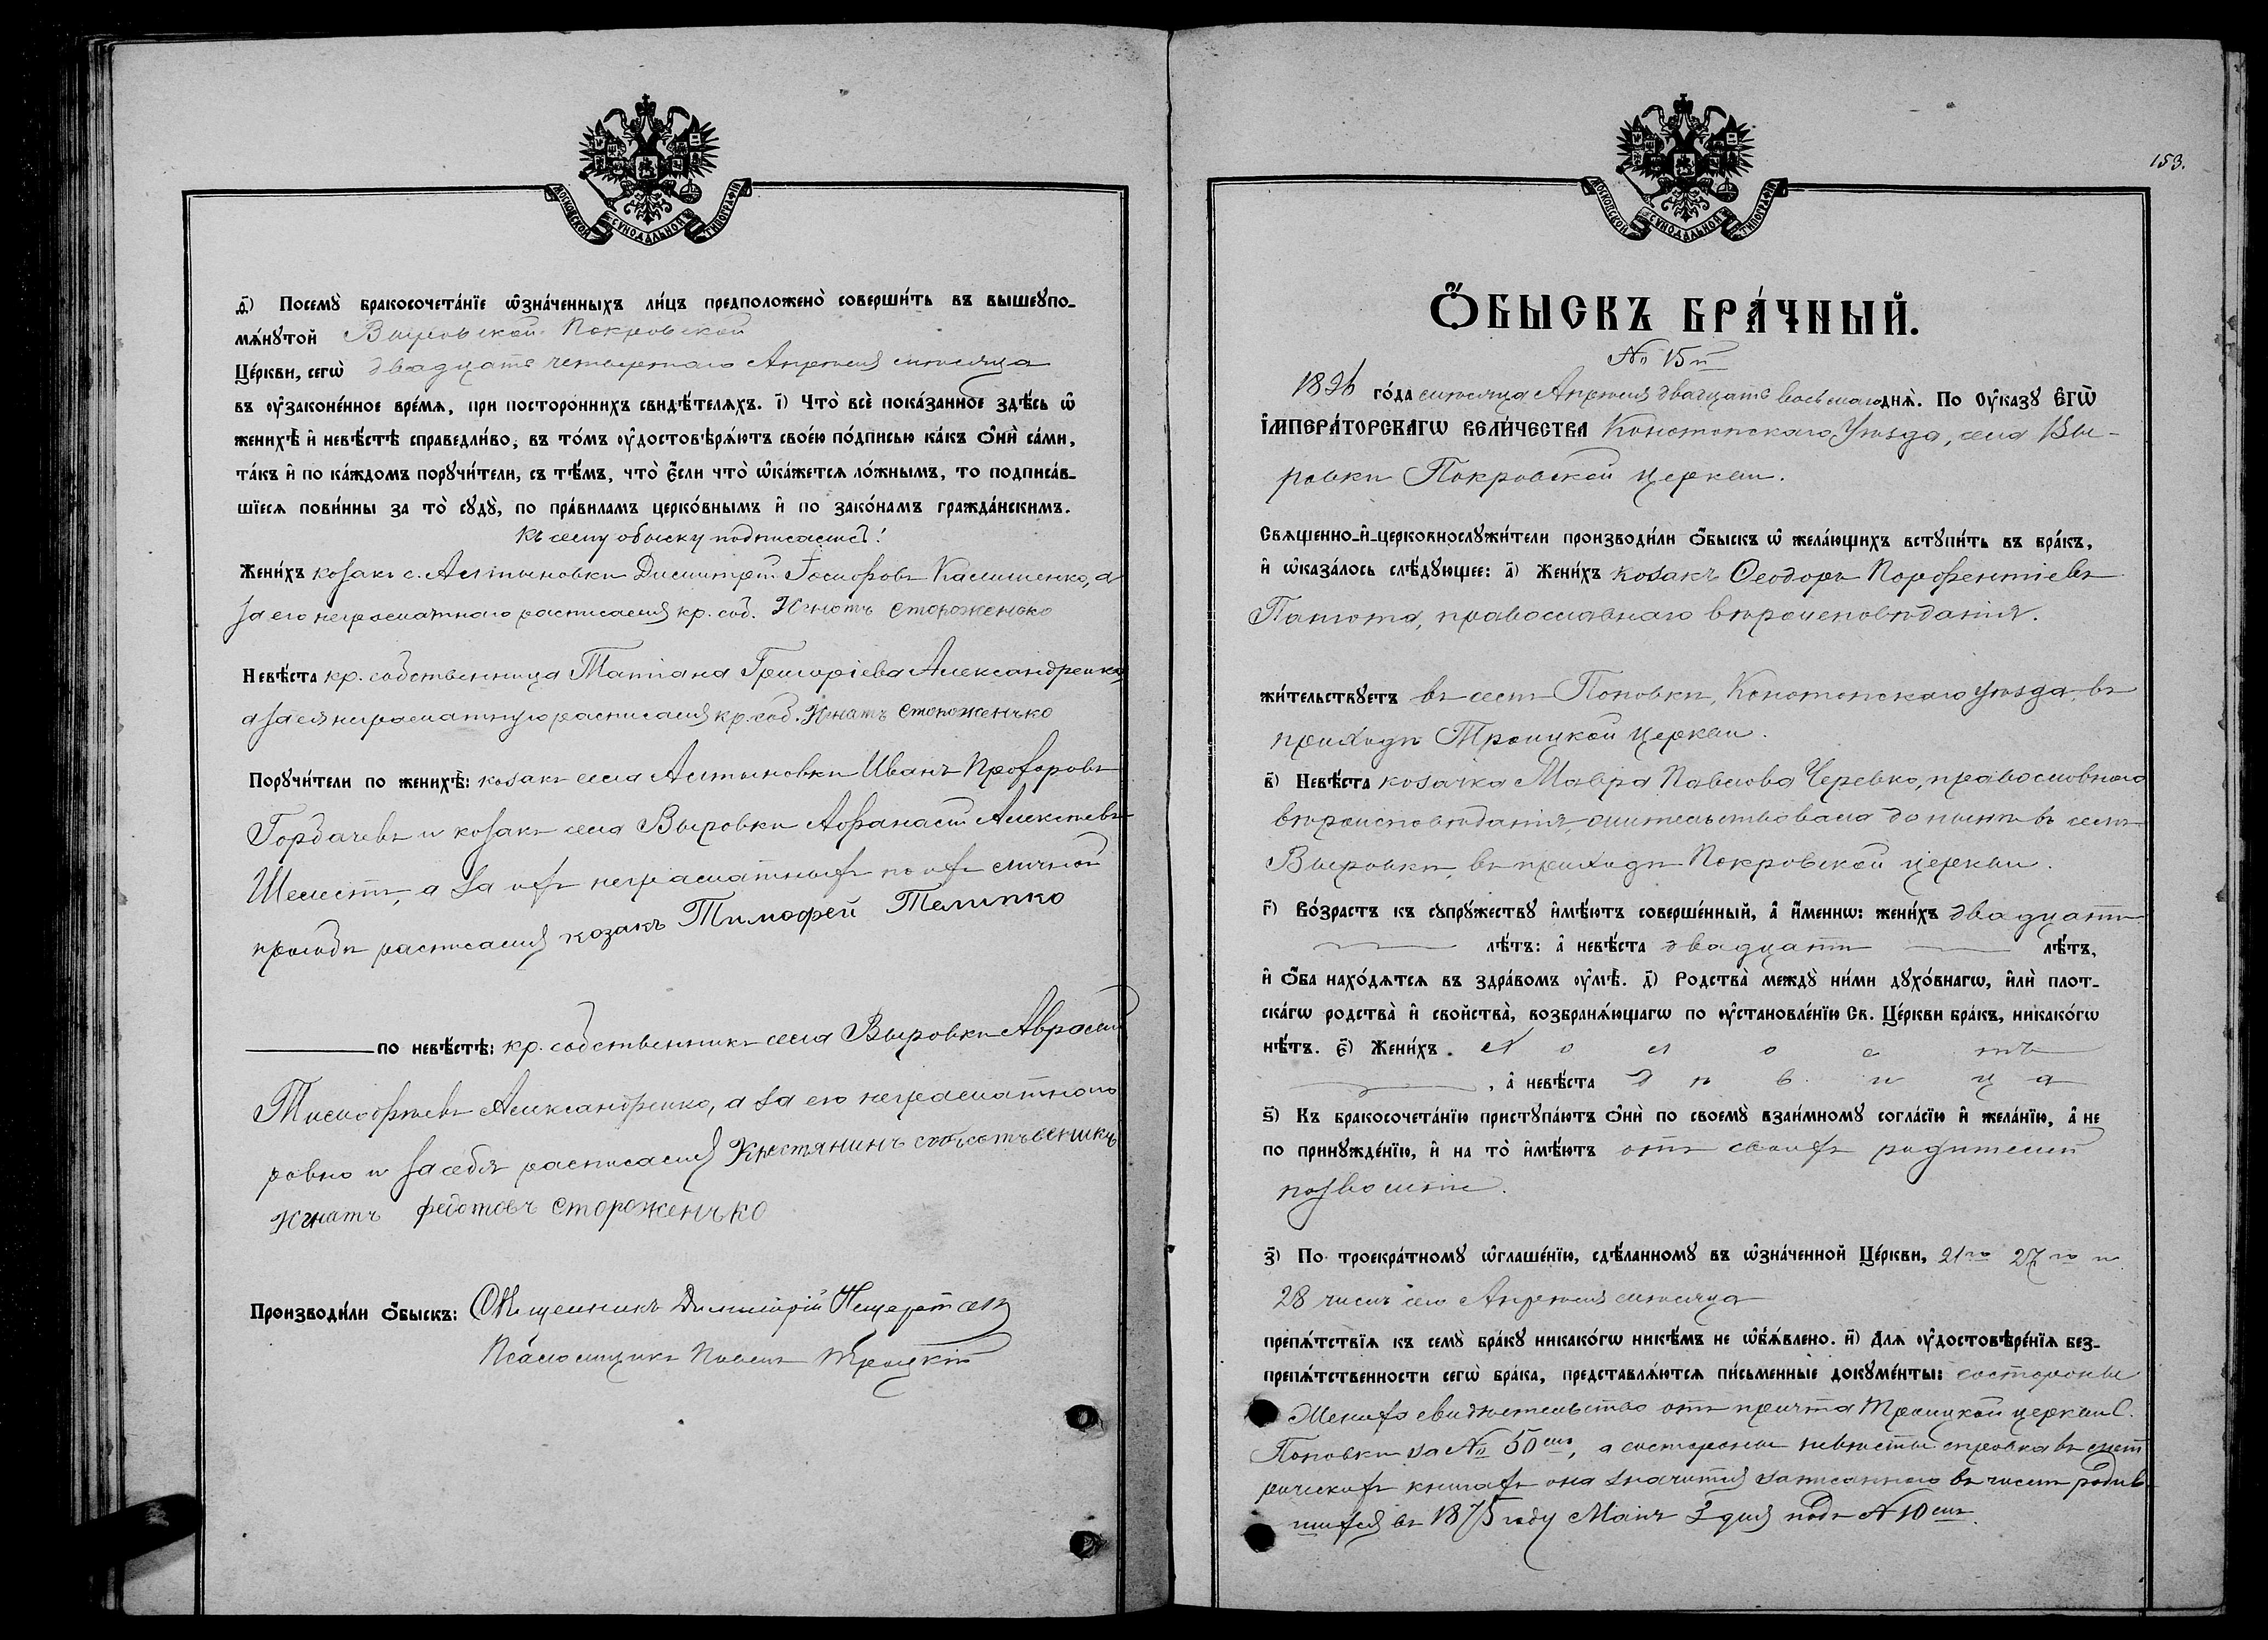 МОСКОВСКОЙ СѴНОДАЛЬНОЙ ТИПОГРАФІИ
ѳ҃) Посемꙋ̀ бракосочета́нїе ѡ҆зна́ченныхъ ли́цъ предположено̀ соверши́ть въ вышеꙋпо-
мѧ́нꙋтой Выровской Покровской
Це́ркви, сегѡ̀ двадцать четвертаго Апрѣля мѣсяца
въ ᲂу҆законе́нное вре́мѧ, при посторо́ннихъ свидѣ́телѧхъ. і҃) Что̀ всѐ пока́занное здѣ́сь ѡ҆
женихѣ̀ и҆ невѣ́стѣ справедли́во, въ то́мъ ᲂу҆достовѣрѧ́ютъ свое́ю по́дписью ка́къ ѻ҆нѝ са́ми,
та́къ и҆ по ка́ждомъ порꙋчи́тели, съ тѣ́мъ, что̀ є҆́сли что̀ ѡ҆ка́жетсѧ ло́жнымъ, то подписа́в-
шїесѧ пови́нны за то̀ сꙋдꙋ̀, по пра́виламъ церко́внымъ и҆ по зако́намъ гражда́нскимъ.
Къ сему обыску подписались:
Жени́хъ козакъ с. Алтыновки Димитрій Іосифовъ Калишенко, а
за его неграматнаго расписался кр. соб. Игнатъ Стороженько
Невѣ́ста кр. собственница Татіана Григоріева Александренкова
а за ея неграматную расписался кр. соб. Игнатъ Стороженько
Порꙋчи́тели по женихѣ̀: козакъ села Алтыновки Иванъ Прохоровъ
Горбачевъ и козакъ села Выровки Афанасій Алексѣевъ
Шелестъ, а за ихъ неграматныхъ по ихъ личной
прозьбѣ расписался козакъ Тимофей Телипко
по невѣ́стѣ: кр. собственникъ села Выровки Аврамъ
Тимофѣевъ Александренко, а за его неграматнаго
ровно и за себя расписался Крестянинъ собъсотвеникъ
Игнатъ федотовъ Стороженько
Производи́ли ѻ҆́быскъ: Священникъ Димитрій
Псаломщикъ Павелъ Троцкій
153.
МОСКОВСКОЙ СѴНОДАЛЬНОЙ ТИПОГРАФІИ
Ѻ҆́БЫСКЪ БРА́ЧНЫЙ.
№ 15й
1896 го́да мѣсяца Апрѣля двадцать восьмаго днѧ̀. По ᲂу҆ка́зꙋ Є҆ГѠ̀
І҆МПЕРА́ТОРСКАГѠ ВЕЛИ́ЧЕСТВА Конотопскаго Уѣзда, села Вы-
ровки Покровской церкви.
Свѧщенно-и҆-церковнослꙋжи́тели производи́ли ѻ҆́быскъ ѡ҆ жела́ющихъ встꙋпи́ть въ бра́къ,
и҆ ѡ҆каза́лось слѣ́дꙋющее: а҃) Жени́хъ козакъ Ѳеодоръ Порфентіевъ
православнаго вѣроисповѣданія.
жи́тельствꙋетъ въ селѣ Поповки, Конотопскаго уѣзда, въ
приходѣ Троицкой церкви.
в҃) Невѣ́ста козачка Мавра Павлова Черевко, православнаго
вѣроисповѣданія, жительствовала до нынѣ въ селѣ
Выровки, въ приходѣ Покровской церкви.
г҃) Во́зрастъ къ сꙋпрꙋ́жествꙋ и҆мѣ́ютъ соверше́нный, а҆ и҆́менно: жени́хъ двадцати
лѣ́тъ: а҆ невѣ́ста двадцати лѣ́тъ,
и҆ ѻ҆́ба нахо́дѧтсѧ въ здра́вомъ ᲂу҆мѣ̀. д҃) Родства̀ междꙋ̀ ни́ми дꙋхо́внагѡ, и҆лѝ плот-
ска́гѡ родства̀ и҆ свойства̀, возбранѧ́ющагѡ по ᲂу҆становле́нїю Св. Це́ркви бра́къ, никако́гѡ
нѣ́тъ. є҃) Жени́хъ х о л о с тъ
, а҆ невѣ́ста д ѣ в и ц а
ѕ҃) Къ бракосочета́нїю пристꙋпа́ютъ ѻ҆нѝ по своемꙋ̀ взаи́мномꙋ согла́сїю и҆ жела́нїю, а҆ не
по принꙋжде́нїю, и҆ на то̀ и҆мѣ́ютъ отъ своихъ родителей
позволеніе.
з҃) По троекра́тномꙋ ѡ҆глаше́нїю, сдѣ́ланномꙋ въ ѡ҆зна́ченной Це́ркви, 21го 27го и
28 числъ сего Апрѣля мѣсяца
препѧ́тствїѧ къ семꙋ̀ бра́кꙋ никако́гѡ никѣ́мъ не ѡ҆б̾ѧ́влено. и҃) Длѧ ᲂу҆достовѣре́нїѧ без-
препѧ́тственности сегѡ̀ бра́ка, представлѧ́ютсѧ пи́сьменные докꙋме́нты: состороны
Жениха свидѣтельство отъ причта Троицкой церкви С.
Поповки за № 50мъ, а состороны невѣсты справка въ мет
рическихъ книгахъ она значится записанною въ числѣ родив
шихся въ 1875 году Маія 3 дня подъ № 10мъ.